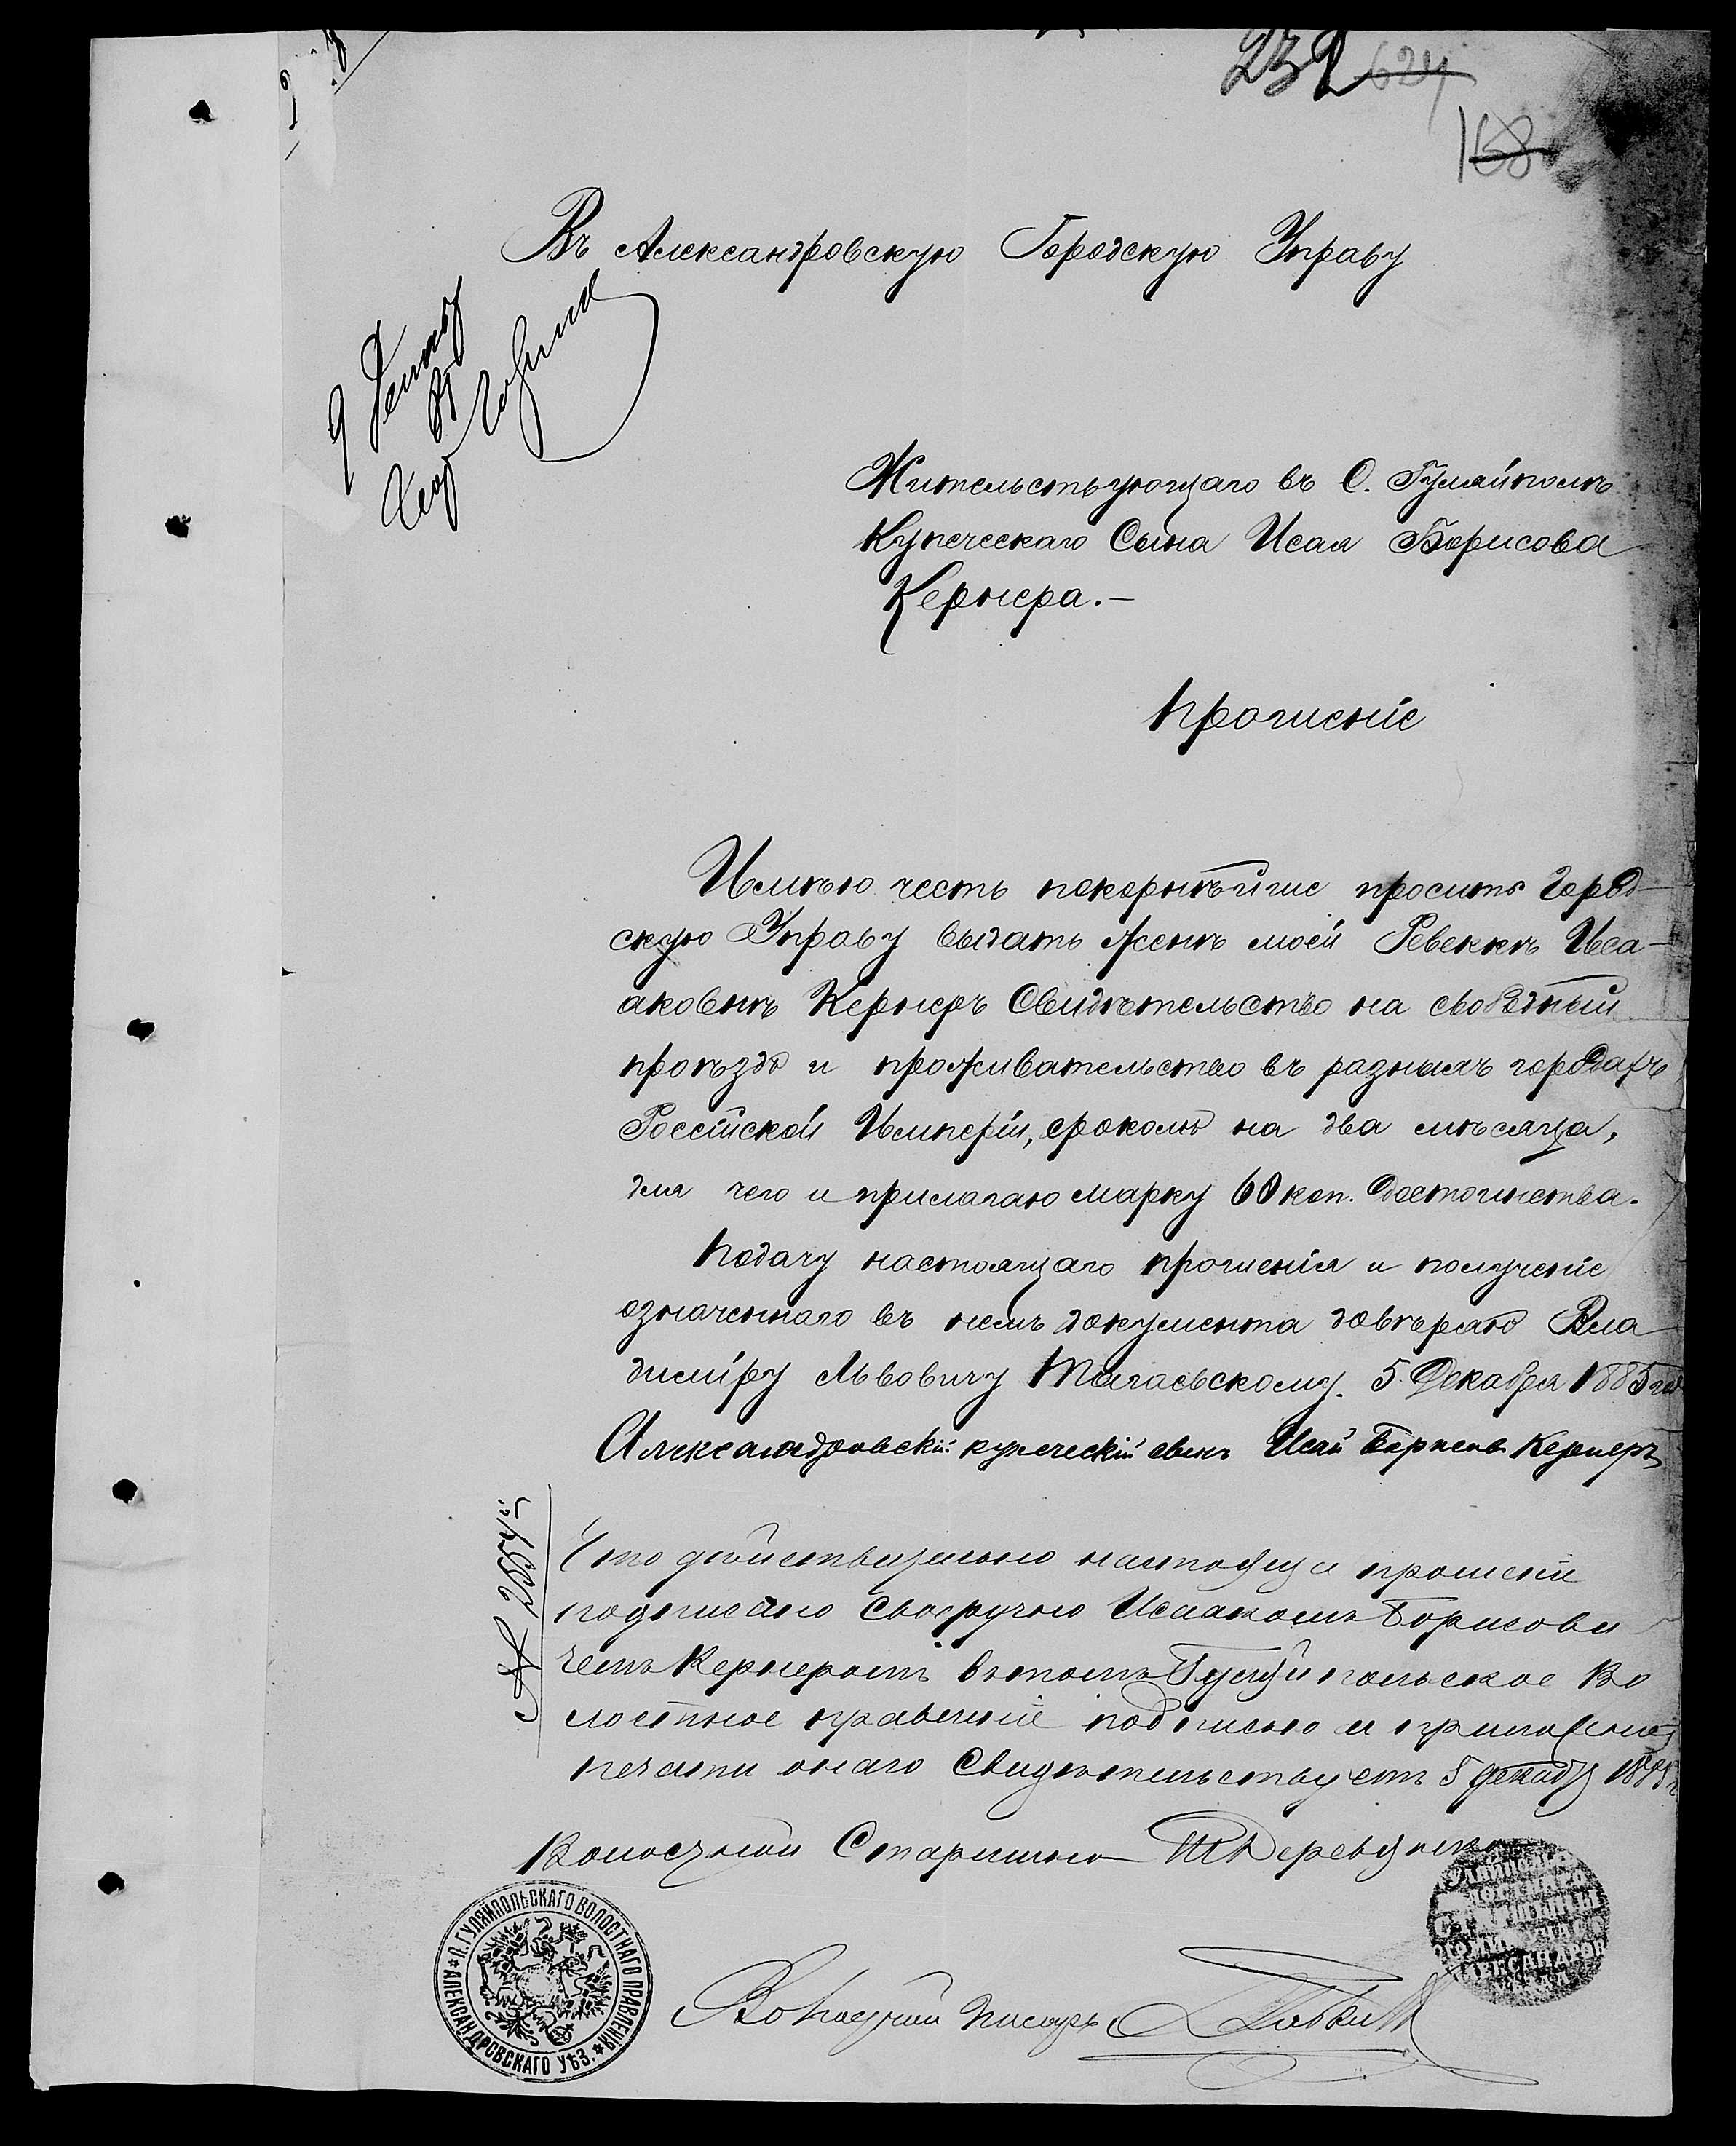 232 624
168
Въ Александровскую Городскую Управу
9 Декабр
85
Жительствующаго въ С. Гуляйполѣ
Купеческаго Сына Исая Борисова
Кернера.—
Прошеніе
Имѣю честь покорнѣйше просить Город-
скую Управу выдать женѣ моей Ревеккѣ Иса-
аковнѣ Кернеръ Свидѣтельство на свободный
проѣздъ и проживательство въ разныхъ городахъ
Россійской Имперіи, срокомъ на два мѣсяца,
для чего и прилагаю марку 60 коп. достоинства.
Подачу настоящаго прошенія и полученіе
означеннаго въ немъ документа довѣряю Вла
диміру Львовичу 5 Декабря 1885 год
Александровскій купеческій сынъ Исай Борисов Кернеръ
Что действительно настоящи прошени
подписано своеручно Исааком Борисови
чемъ Кернеромъ въ томъ Гуляйпольское Во
лостное правленіе подписью и приложением
печати онаго Свидѣтельствуетъ 5 декабр 1885 г
№ 2887
Волосной Старшина
Волосний писарь
* П. ГУЛЯЙПОЛЬСКАГО ВОЛОСТНАГО ПРАВЛЕНІЯ * АЛЕКСАНДРОВСКАГО УѢЗ.
ГУЛЯЙПОЛЬ
ВОЛОСТНАГО
СТАРШИНЫ
АЛЕКСАНДРОВ